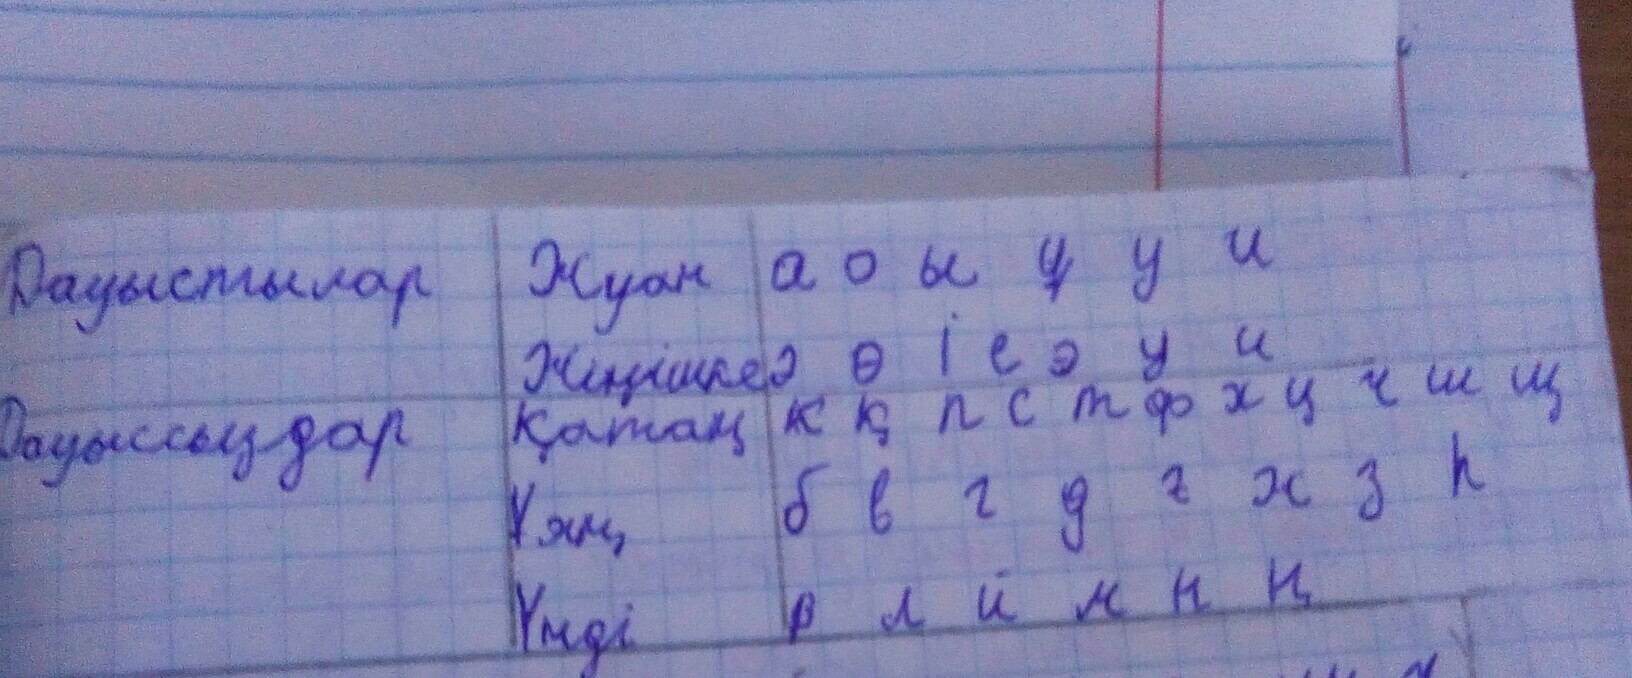 Дауыстылар Жуан а о ы ұ у и
Жіңішке ә ө і е э у и
Дауыссыздар Қатаң к қ п с т ф х ц ч ш щ
Ұяң б в г д ғ ж з һ
Үнді р л й м н ң